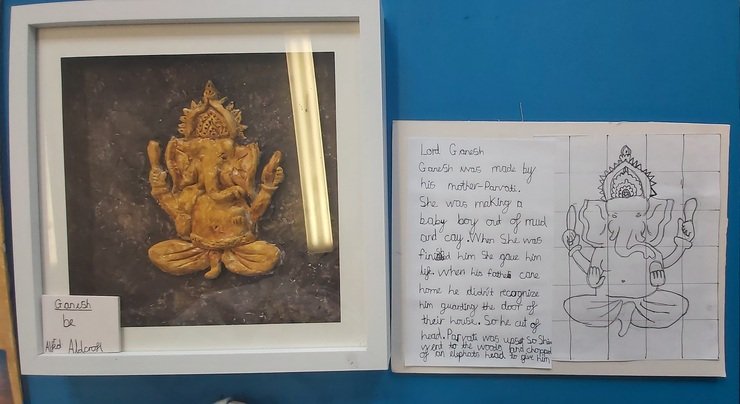 Ganesh
be
Alfed Aldcroft
Lord Ganesh
Ganesh was made by
his mother-Parvati.
She was making a
baby boy out of mud
and cay. When She was
finished him She gave him
life. When his father came
home he didn't recognize
him guarding the door of
their house. So he cut of
head. Parvati was upset so She
went to the woods and chopped
of an elephats head to give him